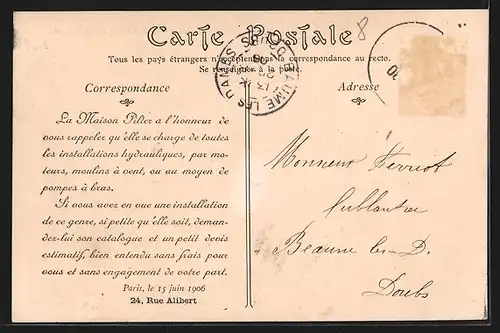 Carte Postale
8
Tous les pays étrangers n'acceptent pas la correspondance au recto.
Se renseigner à la poste.
Correspondance
Adresse
BAUME LES DAMES
La Maison Pilter a l'honneur de
vous rappeler qu'elle se charge de toutes
les installations hydrauliques, par mo-
teurs, moulins à vent, ou au moyen de
pompes à bras.
Si vous avez en vue une installation
de ce genre, si petite qu'elle soit, deman-
dez-lui son catalogue et un petit devis
estimatif, bien entendu sans frais pour
vous et sans engagement de votre part.
Paris, le 15 juin 1906
24, Rue Alibert
Monsieur
Beaume les-D.
Doubs